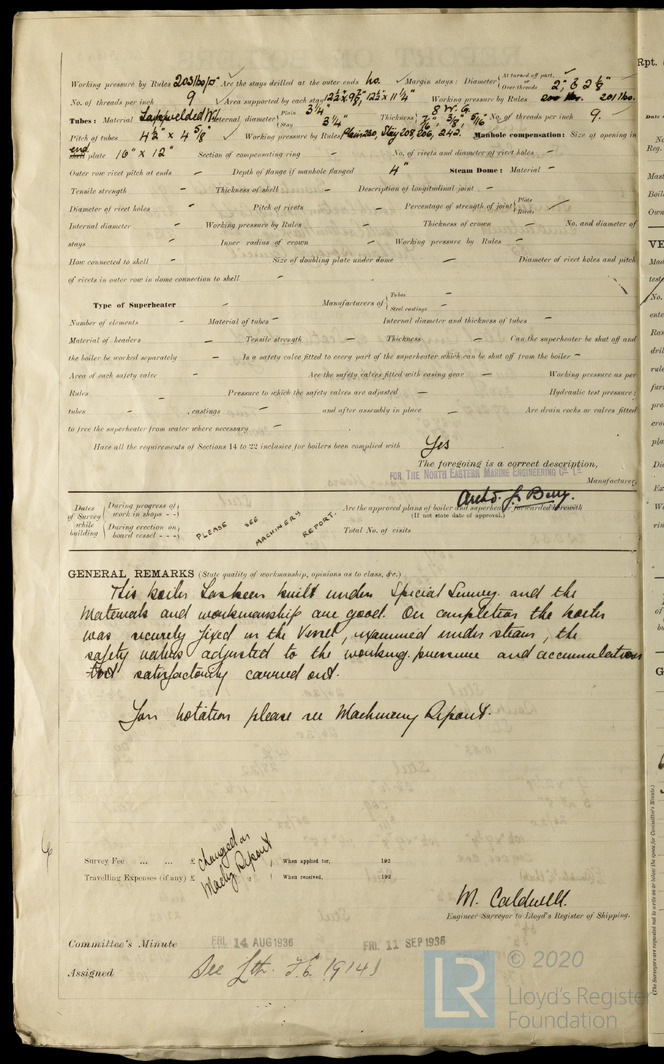 Working pressure by Rules 203 lbs/□" Are the stays drilled at the outer ends No. Margin stays: Diameter { At turned off part, or Over threads 2", & 2 1/8"
No. of threads per inch 9 Area supported by each stay 12½" x 9⅞", 12½" x 11¼" Working pressure by Rules 201 lbs.
Tubes: Material Lapwelded W.I. External diameter { Plain 3¼" Stay 3¼" Thickness { 8 W.G. 5/16" No. of threads per inch 9.
Pitch of tubes 4½" x 4⅝" Working pressure by Rules Plain 220, Stay 208, 242. Manhole compensation: Size of opening in
end plate 16" x 12" Section of compensating ring - No. of rivets and diameter of rivet holes -
Outer row rivet pitch at ends - Depth of flange if manhole flanged 4" Steam Dome: Material -
Tensile strength - Thickness of shell - Description of longitudinal joint -
Diameter of rivet holes - Pitch of rivets - Percentage of strength of joint { Plate Rivets -
Internal diameter - Working pressure by Rules - Thickness of crown - No. and diameter of
stays - Inner radius of crown - Working pressure by Rules -
How connected to shell - Size of doubling plate under dome - Diameter of rivet holes and pitch
of rivets in outer row in dome connection to shell -
Type of Superheater - Manufacturers of { Tubes - Steel castings -
Number of elements - Material of tubes - Internal diameter and thickness of tubes -
Material of headers - Tensile strength - Thickness - Can the superheater be shut off and
the boiler be worked separately - Is a safety valve fitted to every part of the superheater which can be shut off from the boiler -
Area of each safety valve - Are the safety valves fitted with easing gear - Working pressure as per
Rules - Pressure to which the safety valves are adjusted - Hydraulic test pressure:
tubes - , castings - and after assembly in place - Are drain cocks or valves fitted
to free the superheater from water where necessary -
Have all the requirements of Sections 14 to 22 inclusive for boilers been complied with Yes
The foregoing is a correct description,
FOR THE NORTH EASTERN MARINE ENGINEERING Co. Ld.
Manufacturer.
Dates of Survey while building { During progress of work in shops - - } { During erection on board vessel - - - }
PLEASE SEE MACHINERY REPORT.
Are the approved plans of boiler and superheater forwarded herewith
(If not state date of approval.)
Total No. of visits
GENERAL REMARKS (State quality of workmanship, opinions as to class, &c.)
This boiler has been built under Special Survey and the
materials and workmanship are good. On completion the boiler
was securely fixed in the vessel, examined under steam, the
safety valves adjusted to the working pressure and accumulation
test satisfactorily carried out.
For notation please see Machinery Report.
Survey Fee ... ... £ : : When applied for, 192
Travelling Expenses (if any) £ : : When received, 192
charged on
Machy Report
M. Caldwell.
Engineer Surveyor to Lloyd's Register of Shipping.
Committee's Minute FRI. 14 AUG 1936 FRI. 11 SEP 1936
Assigned See Ltr. F.E. 19141
© 2020
LR Lloyd's Register
Foundation